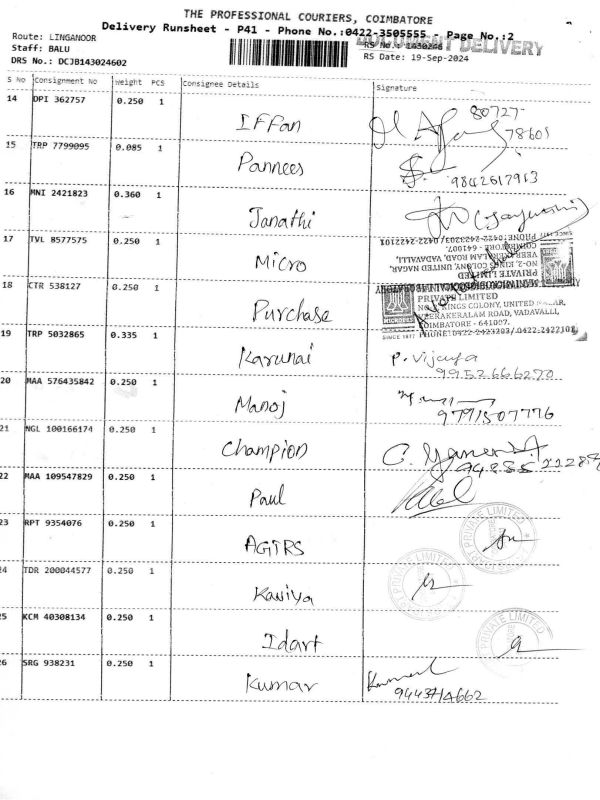 THE PROFESSIONAL COURIERS, COIMBATORE
Delivery Runsheet - P41 - Phone No.:0422-3505555 - Page No.:2
DOCUMENT DELIVERY
Route: LINGANOOR RS No.: 1430246
Staff: BALU RS Date: 19-Sep-2024
DRS No.: DCJB143024602
S No Consignment No Weight PCS Consignee Details Signature
14 DPI 362757 0.250 1 Iffan 80727 78601
15 TRP 7799095 0.085 1 Pannees 9842617913
16 MNI 2421823 0.360 1 Janathi
17 TVL 8577575 0.250 1 Micro
PHONE:0422-2423203/0422-2422101
COIMBATORE - 641007.
VEERAKERALAM ROAD, VADAVALLI,
NO-2, KINGS COLONY, UNITED NAGAR,
PRIVATE LIMITED
18 CTR 538127 0.250 1 Purchase
PRIVATE LIMITED
KINGS COLONY, UNITED NAGAR,
VEERAKERALAM ROAD, VADAVALLI,
COIMBATORE - 641007.
SINCE 1977 PHONE:0422-2423203/0422-2422108
19 TRP 5032865 0.335 1 Karunai P. Vijaya 9952666270
20 MAA 576435842 0.250 1 Manoj 9791507776
21 NGL 100166174 0.250 1 Champion
22 MAA 109547829 0.250 1 Paul
23 RPT 9354076 0.250 1 AGIRS
PRIVATE LIMITED
24 TDR 200044577 0.250 1 Kaviya
PRIVATE LIMITED
25 KCM 40308134 0.250 1 Idart
PRIVATE LIMITED
26 SRG 938231 0.250 1 Kumar 9443714662